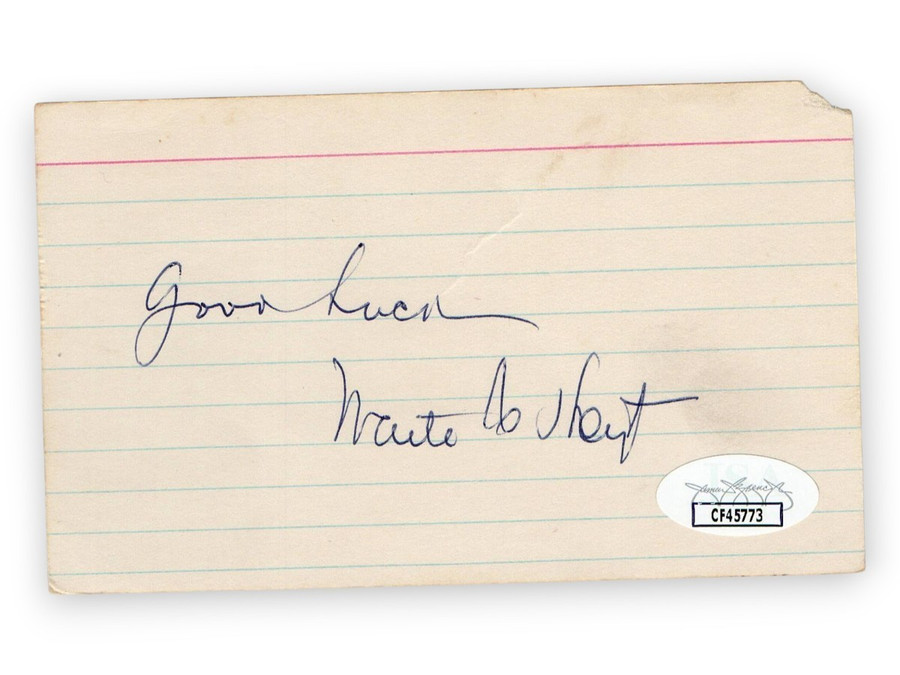 Good Luck
Waite C Hoyt
JSA
CF45773